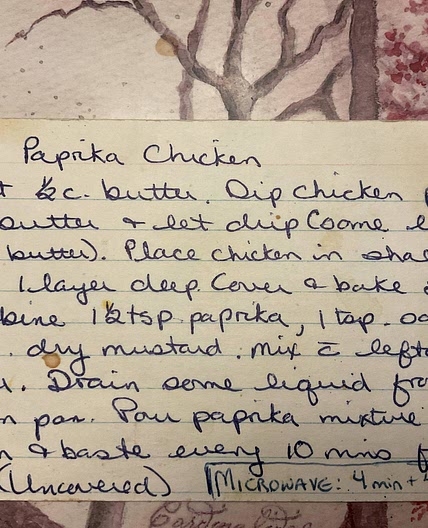 Paprika Chicken
½c. butter. Dip chicken
butter & let drip (some
butter). Place chicken in
1 layer deep. Cover & bake
bine 1½tsp. paprika, 1 tsp.
dry mustard. Mix c̄ left
Drain some liquid fro
pan. Pour paprika mixture
& baste every 10 mins
(Uncovered) MICROWAVE: 4 min +